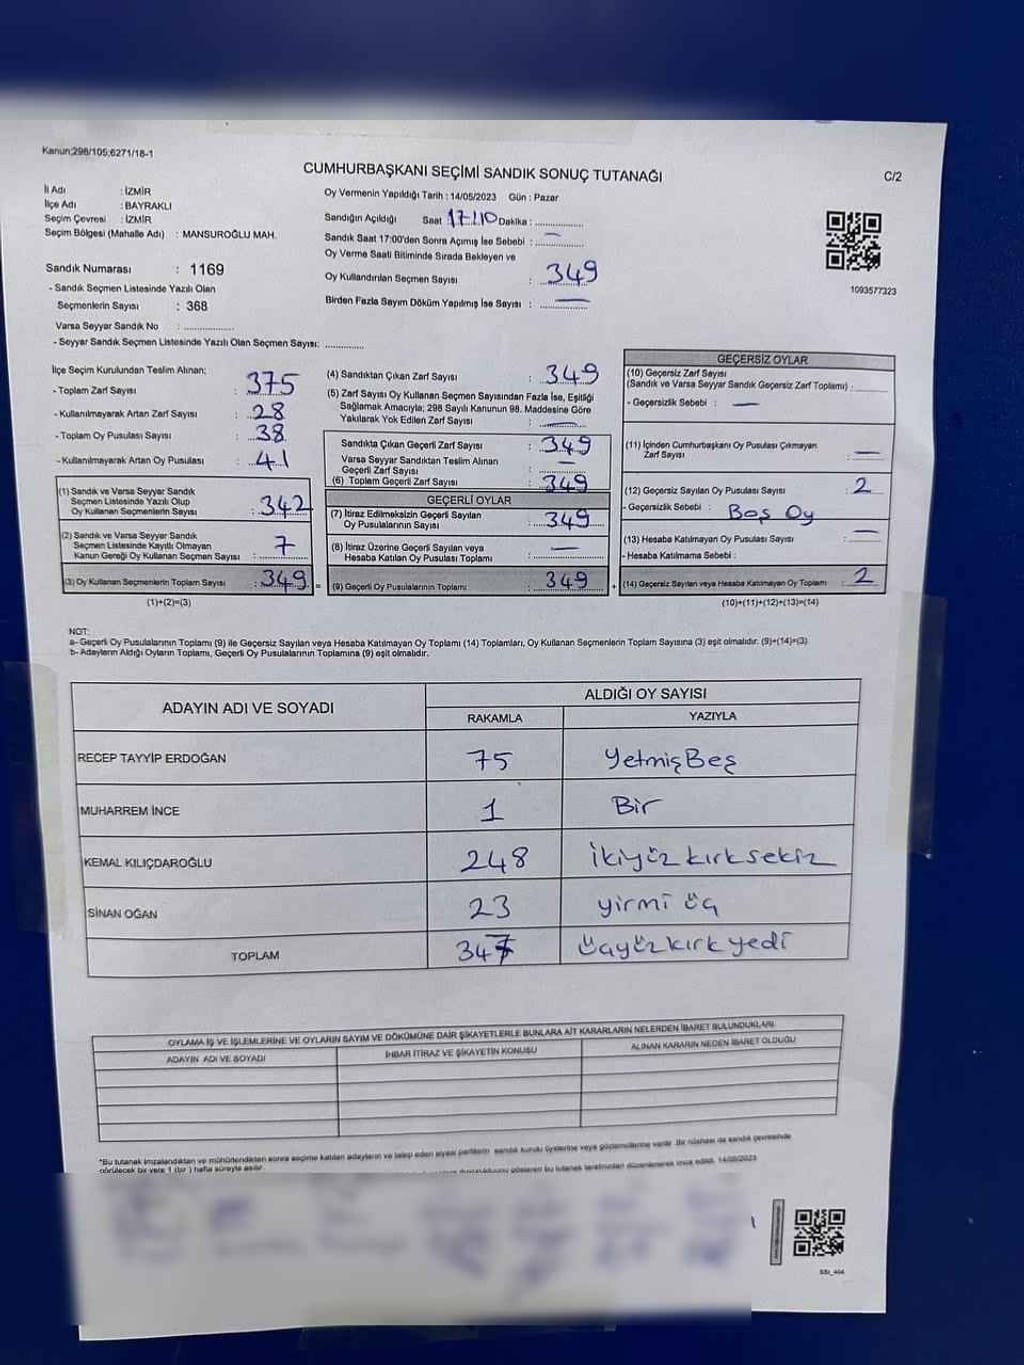 Kanun;298/105;6271/18-1
CUMHURBAŞKANI SEÇİMİ SANDIK SONUÇ TUTANAĞI
C/2
İl Adı : İZMİR
İlçe Adı : BAYRAKLI
Seçim Çevresi : İZMİR
Seçim Bölgesi (Mahalle Adı) : MANSUROĞLU MAH.
Oy Vermenin Yapıldığı Tarih : 14/05/2023 Gün : Pazar
Sandığın Açıldığı Saat 17:10 Dakika : ..............
Sandık Saat 17:00'den Sonra Açımış İse Sebebi : —
Oy Verme Saati Bitiminde Sırada Bekleyen ve
Oy Kullandırılan Seçmen Sayısı : 349
Birden Fazla Sayım Döküm Yapılmış İse Sayısı : —
1093577323
Sandık Numarası : 1169
- Sandık Seçmen Listesinde Yazılı Olan
Seçmenlerin Sayısı : 368
Varsa Seyyar Sandık No : ..............
- Seyyar Sandık Seçmen Listesinde Yazılı Olan Seçmen Sayısı: ...........
İlçe Seçim Kurulundan Teslim Alınan:
- Toplam Zarf Sayısı : 375
- Kullanılmayarak Artan Zarf Sayısı : 28
- Toplam Oy Pusulası Sayısı : 38
- Kullanılmayarak Artan Oy Pusulası : 41
(1) Sandık ve Varsa Seyyar Sandık
Seçmen Listesinde Yazılı Olup
Oy Kullanan Seçmenlerin Sayısı : 342
(2) Sandık ve Varsa Seyyar Sandık
Seçmen Listesinde Kayıtlı Olmayan
Kanun Gereği Oy Kullanan Seçmen Sayısı : 7
(3) Oy Kullanan Seçmenlerin Toplam Sayısı : 349 =
(1)+(2)=(3)
(4) Sandıktan Çıkan Zarf Sayısı : 349
(5) Zarf Sayısı Oy Kullanan Seçmen Sayısından Fazla İse, Eşitliği
Sağlamak Amacıyla; 298 Sayılı Kanunun 98. Maddesine Göre
Yakılarak Yok Edilen Zarf Sayısı : —
Sandıkta Çıkan Geçerli Zarf Sayısı : 349
Varsa Seyyar Sandıktan Teslim Alınan
Geçerli Zarf Sayısı : —
(6) Toplam Geçerli Zarf Sayısı : 349
GEÇERLİ OYLAR
(7) İtiraz Edilmeksizin Geçerli Sayılan
Oy Pusulalarının Sayısı : 349
(8) İtiraz Üzerine Geçerli Sayılan veya
Hesaba Katılan Oy Pusulası Toplamı : —
(9) Geçerli Oy Pusulalarının Toplamı : 349 +
GEÇERSİZ OYLAR
(10) Geçersiz Zarf Sayısı
(Sandık ve Varsa Seyyar Sandık Geçersiz Zarf Toplamı) : ........
- Geçersizlik Sebebi : —
(11) İçinden Cumhurbaşkanı Oy Pusulası Çıkmayan
Zarf Sayısı : —
(12) Geçersiz Sayılan Oy Pusulası Sayısı : 2
- Geçersizlik Sebebi : Boş Oy
(13) Hesaba Katılmayan Oy Pusulası Sayısı : —
- Hesaba Katılmama Sebebi :
(14) Geçersiz Sayılan veya Hesaba Katılmayan Oy Toplamı : 2
(10)+(11)+(12)+(13)=(14)
NOT:
a- Geçerli Oy Pusulalarının Toplamı (9) ile Geçersiz Sayılan veya Hesaba Katılmayan Oy Toplamı (14) Toplamları, Oy Kullanan Seçmenlerin Toplam Sayısına (3) eşit olmalıdır. (9)+(14)=(3)
b- Adayların Aldığı Oyların Toplamı, Geçerli Oy Pusulalarının Toplamına (9) eşit olmalıdır.
ADAYIN ADI VE SOYADI
ALDIĞI OY SAYISI
RAKAMLA YAZIYLA
RECEP TAYYİP ERDOĞAN 75 YetmişBeş
MUHARREM İNCE 1 Bir
KEMAL KILIÇDAROĞLU 248 İkiyüz kırk sekiz
SİNAN OĞAN 23 yirmi üç
TOPLAM 347 üçyüz kırk yedi
OYLAMA İŞ VE İŞLEMLERİNE VE OYLARIN SAYIM VE DÖKÜMÜNE DAİR ŞİKAYETLERLE BUNLARA AİT KARARLARIN NELERDEN İBARET BULUNDUKLARI
ADAYIN ADI VE SOYADI İHBAR İTİRAZ VE ŞİKAYETİN KONUSU ALINAN KARARIN NEDEN İBARET OLDUĞU
*Bu tutanak imzalandıktan ve mühürlendikten sonra seçime katılan adayların ve talep eden siyasi partilerin sandık kurulu üyelerine veya gözlemcilerine verilir. Bir nüshası da sandık çevresinde
görülecek bir yere 1 (bir ) hafta süreyle asılır.
bu tutanak tarafımızdan düzenlenerek imza edildi. 14/05/2023